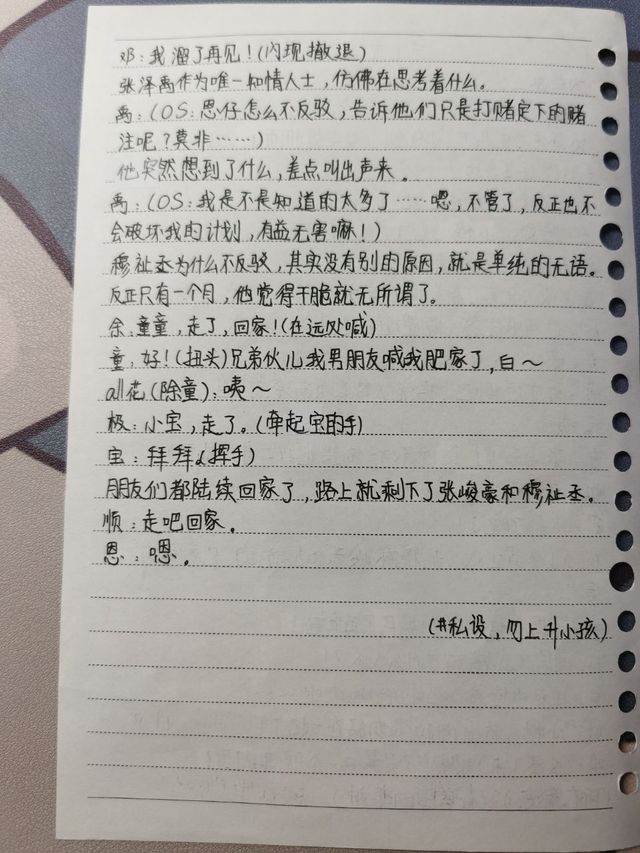 邓:我溜了再见!(闪现撤退)
张泽禹作为唯一知情人士,仿佛在思考着什么。
禹:(OS:恩仔怎么不反驳,告诉他们只是打赌定下的赌
注呢?莫非……)
他突然想到了什么,差点叫出声来。
禹:(OS:我是不是知道的太多了……嗯,不管了,反正也不
会破坏我的计划,有益无害嘛!)
穆祉丞为什么不反驳,其实没有别的原因,就是单纯的无语。
反正只有一个月,他觉得干脆就无所谓了。
余:童童,走了,回家!(在远处喊)
童:好!(扭头)兄弟伙儿我男朋友喊我肥家了,白~
all花(除童):咦~
极:小宝,走了。(牵起宝的手)
虫:拜拜。(挥手)
朋友们都陆续回家了,路上就剩下了张峻豪和穆祉丞。
顺:走吧回家。
恩:嗯。
(#私设,勿上升小孩)